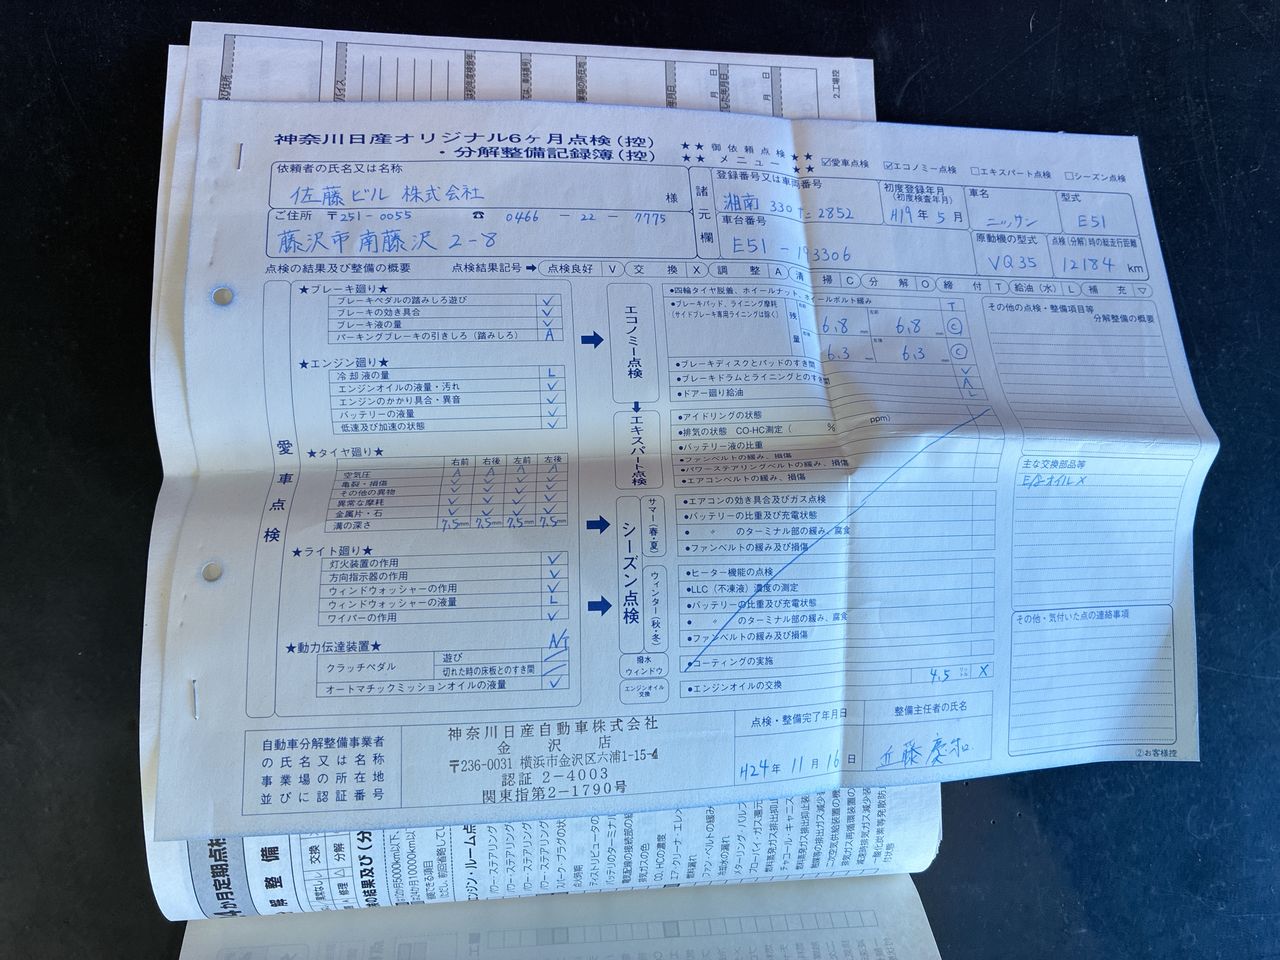 神奈川日産オリジナル6ヶ月点検(控)
・分解整備記録簿(控)
★★ 御依頼点検 ★★
★★ メニュー ★★
☑愛車点検 ☑エコノミー点検 □エキスパート点検 □シーズン点検
依頼者の氏名又は名称
佐藤ビル 株式会社 様
ご住所 〒251-0055 ☎ 0466-22-7775
藤沢市南藤沢 2-8
諸元欄
登録番号又は車両番号
湘南 330 2852
初度登録年月
(初度検査年月)
H19年5月
車名
ニッサン
型式
E51
車台番号
E51-193306
原動機の型式
VQ35
点検(分解)時の総走行距離
12184 km
点検の結果及び整備の概要 点検結果記号→ 点検良好 V 交換 X 調整 A 清掃 C 分解 O 締付 T 給油(水) L 補充 ▽
愛車点検
★ブレーキ廻り★
ブレーキペダルの踏みしろ遊び ✓
ブレーキの効き具合 ✓
ブレーキ液の量 ✓
パーキングブレーキの引きしろ(踏みしろ) A
★エンジン廻り★
冷却液の量 L
エンジンオイルの液量・汚れ ✓
エンジンのかかり具合・異音 ✓
バッテリーの液量 ✓
低速及び加速の状態 ✓
★タイヤ廻り★
右前 右後 左前 左後
空気圧 A A A A
亀裂・損傷 ✓ ✓ ✓ ✓
その他の異物 ✓ ✓ ✓ ✓
異常な摩耗 ✓ ✓ ✓ ✓
金属片・石 ✓ ✓ ✓ ✓
溝の深さ 7.5mm 7.5mm 7.5mm 7.5mm
★ライト廻り★
灯火装置の作用 ✓
方向指示器の作用 ✓
ウィンドウォッシャーの作用 ✓
ウィンドウォッシャーの液量 L
ワイパーの作用 ✓
★動力伝達装置★ A/T
クラッチペダル
遊び
切れた時の床板とのすき間
オートマチックミッションオイルの液量 ✓
エコノミー点検
●四輪タイヤ脱着、ホイールナット、ホイールボルト緩み T
●ブレーキパッド、ライニング摩耗
(サイドブレーキ専用ライニングは除く)
残量
6.8 mm 6.8 mm Ⓒ
6.3 mm 6.3 mm Ⓒ
●ブレーキディスクとパッドのすき間 ✓
●ブレーキドラムとライニングとのすき間 A
●ドアー廻り給油 L
エキスパート点検
●アイドリングの状態
●排気の状態 CO-HC測定( % ppm)
●バッテリー液の比重
●ファンベルトの緩み、損傷
●パワーステアリングベルトの緩み、損傷
●エアコンベルトの緩み、損傷
シーズン点検
サマー(春・夏)
●エアコンの効き具合及びガス点検
●バッテリーの比重及び充電状態
● 〃 のターミナル部の緩み、腐食
●ファンベルトの緩み及び損傷
ウィンター(秋・冬)
●ヒーター機能の点検
●LLC(不凍液)濃度の測定
●バッテリーの比重及び充電状態
● 〃 のターミナル部の緩み、腐食
●ファンベルトの緩み及び損傷
撥水
ウィンドウ
●コーティングの実施
エンジンオイル
交換
●エンジンオイルの交換 4.5 X
その他の点検・整備項目等
分解整備の概要
主な交換部品等
E/gオイル X
その他・気付いた点の連絡事項
自動車分解整備事業者
の氏名又は名称
事業場の所在地
並びに認証番号
神奈川日産自動車株式会社
金沢店
〒236-0031 横浜市金沢区六浦1-15-4
認証 2-4003
関東指第2-1790号
点検・整備完了年月日
H24年11月16日
整備主任者の氏名
②お客様控
2.工場控